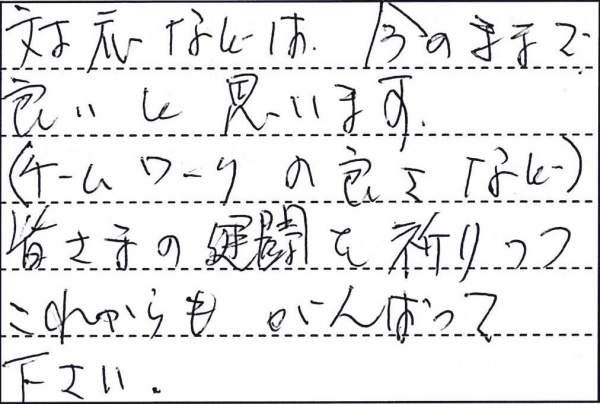 対応などは、今のままで
良いと思います。
(チームワークの良さなど)
皆さまの健闘を祈りつつ
これからもがんばって
下さい。